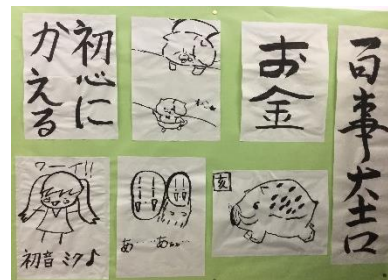 初心に
かえる
お金
百事大吉
ワーイ!!
初音ミク♪
亥